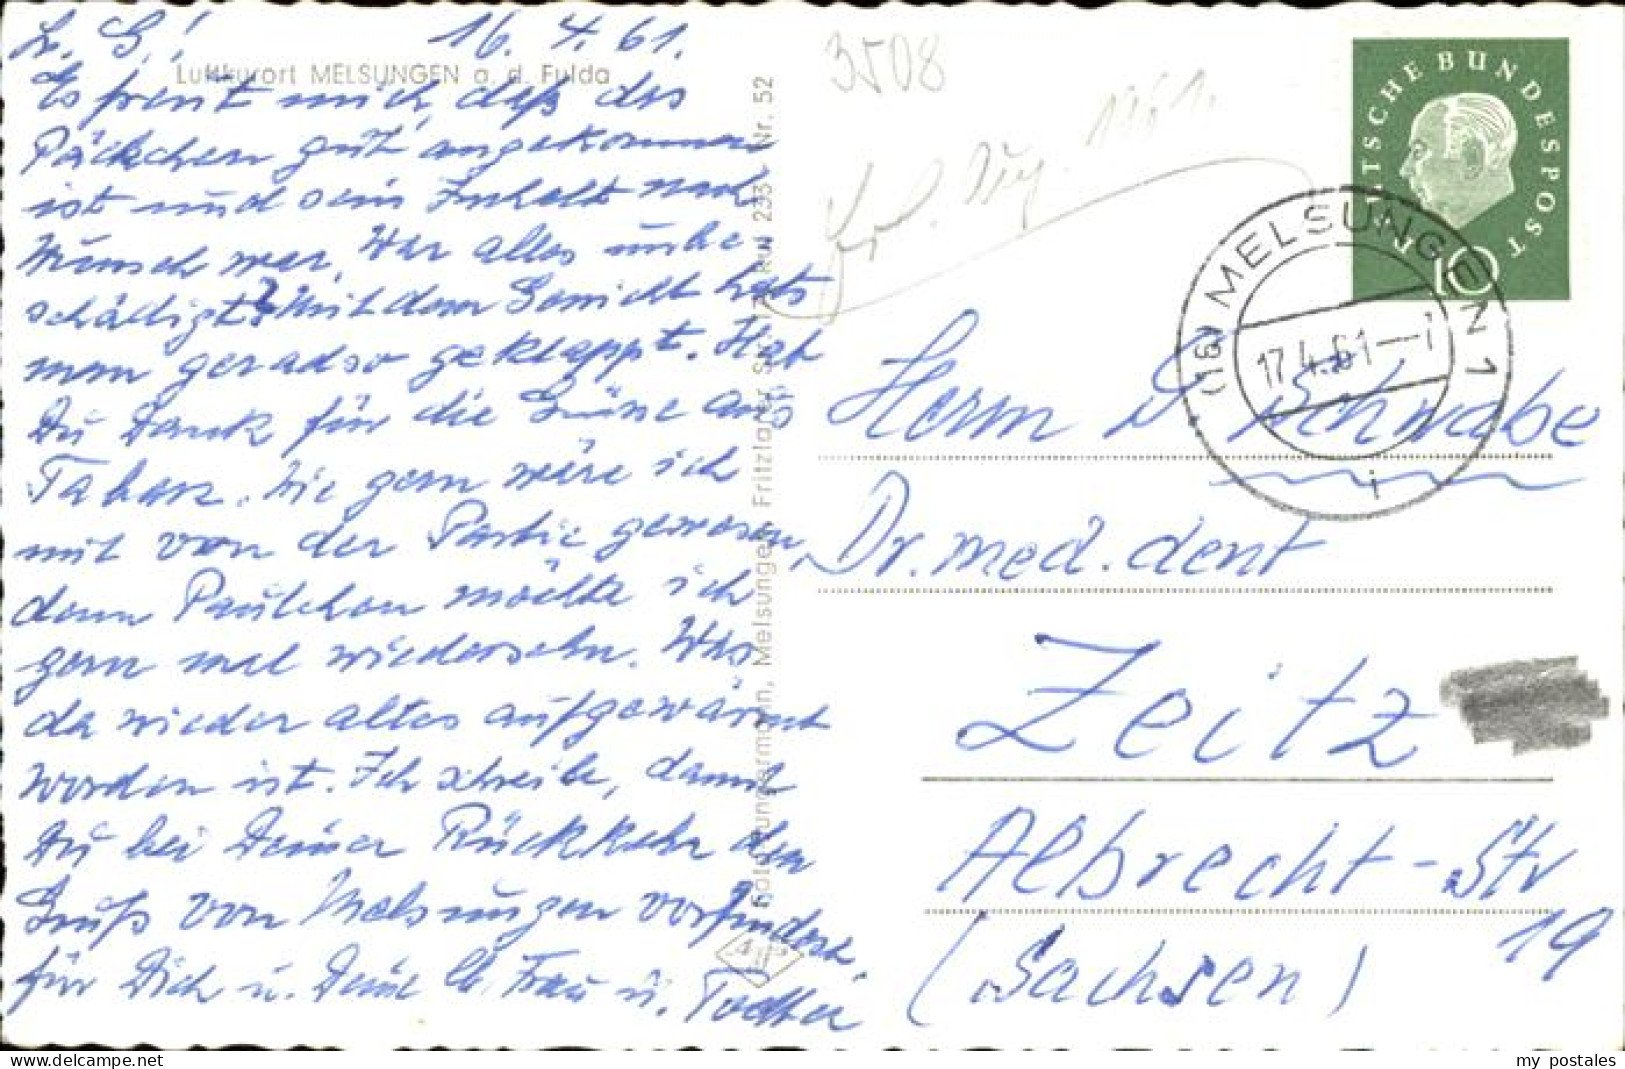 L. G.! 16. 4. 61.
Luftkurort MELSUNGEN a. d. Fulda
Es freut mich, daß das
Päckchen gut angekommen
ist und sein Inhalt nach
Wunsch war. War alles unbe-
schädigt? Mit dem Gewicht hats
man geradso geklappt. Hab
Du Dank für die Grüße aus
Tabarz. Wie gern wäre ich
mit von der Partie gewesen,
denn Paulchen möchte ich
gern mal wiedersehn. Was
da wieder altes aufgewärmt
worden ist. Ich schreibe, damit
Du bei Deiner Rückkehr den
Gruß von Melsungen vorfindest.
für Dich u. Deine lb. Frau u. Tochter
Melsungen, Fritzlarer Nr. 52
3508
DEUTSCHE BUNDESPOST
10
(16) MELSUNGEN 1
17.4.61
i
Herrn D Schwabe
Dr. med. dent
Zeitz
Albrecht-Str
19
(Sachsen)
my postales